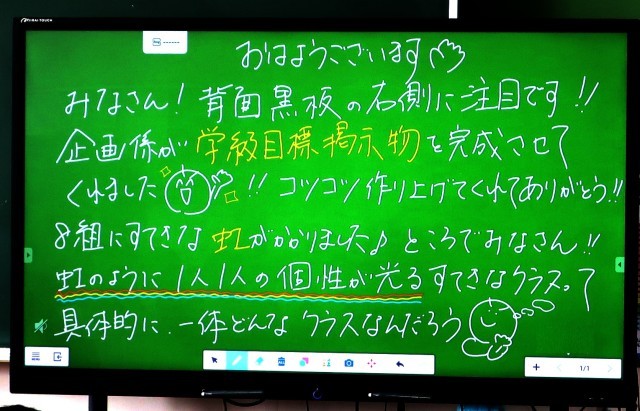 おはようございます
みなさん！背面黒板の右側に注目です!!
企画係が学級目標掲示物を完成させて
くれました!!コツコツ作り上げてくれてありがとう!!
8組にすてきな虹がかかりました♪ところでみなさん!!
虹のように1人1人の個性が光るすてきなクラスって
具体的に、一体どんなクラスなんだろう
1/1